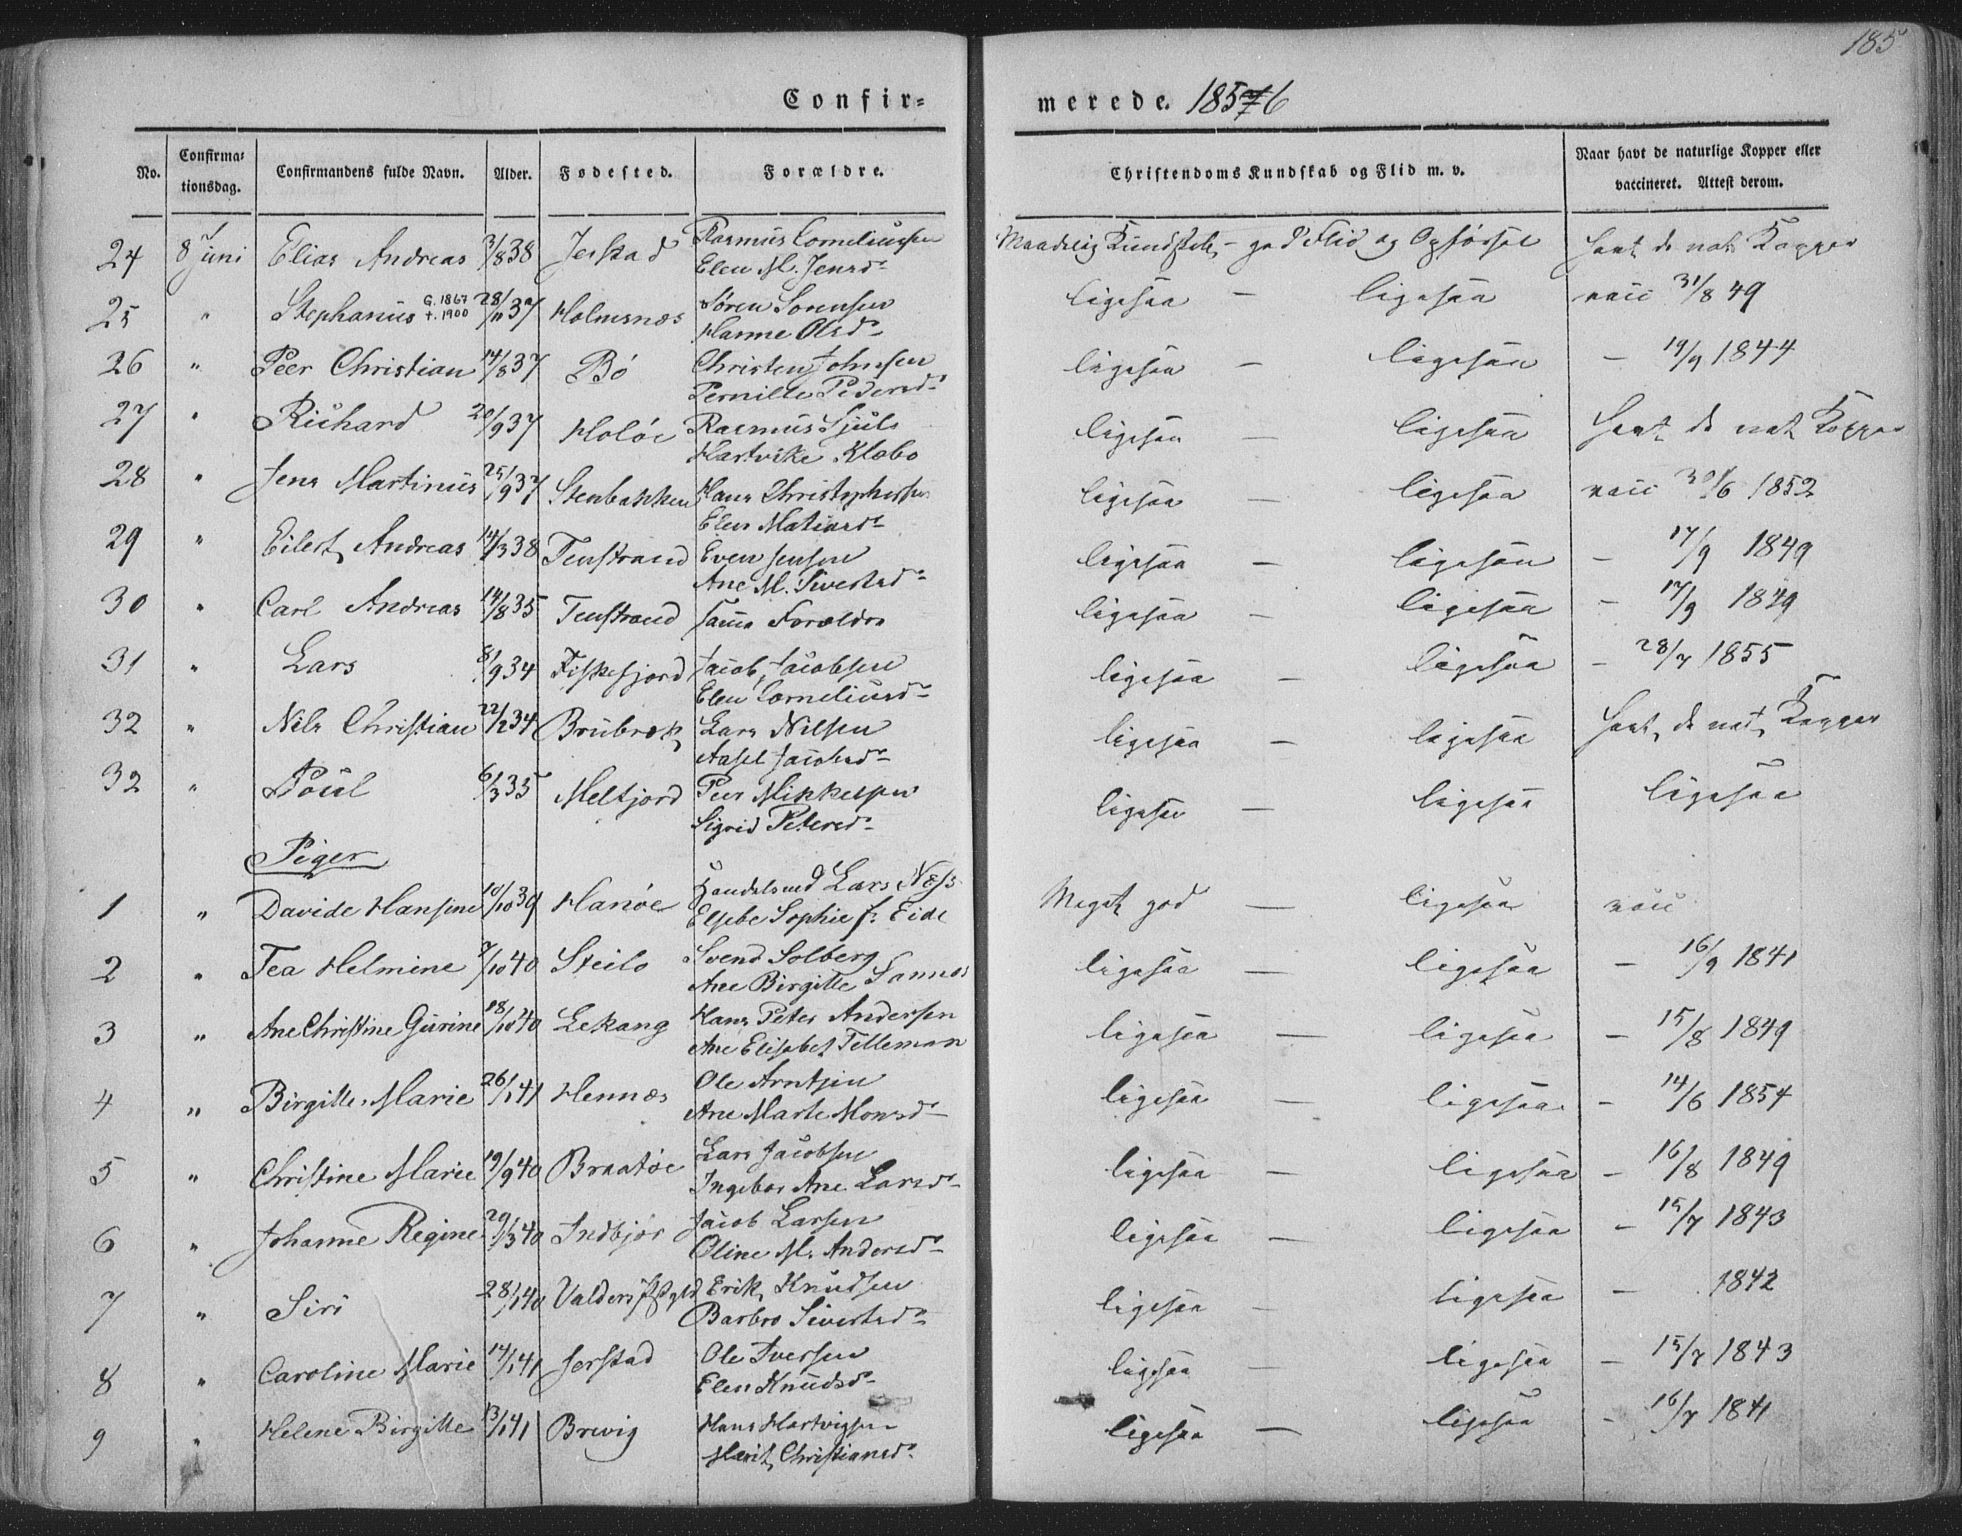 185
Confir-
merede. 18576
No. Confirma-tionsdag. Confirmandens fulde Navn. Alder. Fødested. Forældre. Christendoms Kundskab og Flid m. v. Naar havt de naturlige Kopper eller vaccineret. Attest derom.
24 8 Juni Elias Andreas 3/8 38 Jerstad Rasmus Corneliussen Maadelig Kundskab – god Flid og Opførsel Havt de nat. Kopper
Elen M. Jensd.
25 " Stephanus G. 1867 †. 1900 28/11 37 Holmsnæs Søren Sørensen ligesaa – ligesaa vacc 31/8 49
Hanne Olsd.
26 " Peer Christian 14/8 37 Bø Christen Johnsen ligesaa – ligesaa – 19/9 1844
Pernille Pedersd.
27 " Richard 20/9 37 Holøe Rasmus Sjuls ligesaa – ligesaa Havt de nat Kopper
Hartvike Klæbo
28 " Jens Martinus 25/9 37 Stenbakken Hans Christophersen ligesaa – ligesaa vacc 30/6 1852
Elen Matiasd.
29 " Eilert Andreas 14/3 38 Tenstrand Even Jensen ligesaa – ligesaa – 17/9 1849
Ane M. Sivertsd.
30 " Carl Andreas 14/8 35 Tenstrand samme Forældre ligesaa – ligesaa – 17/9 1849
31 " Lars 8/9 34 Fiskefjord Jacob Jacobsen ligesaa – ligesaa – 28/7 1855
Elen Corneliusd.
32 " Nils Christian 22/2 34 Brubræk Lars Nilsen ligesaa – ligesaa Havt de nat. Kopper
Aasel Jacobsd.
32 " Poul 6/3 35 Melfjord Peer Mikkelsen ligesaa – ligesaa ligesaa
Sigrid Petersd.
Piger
1 " Davide Hansine 10/10 39 Hanøe Handelsmd Lars Næss Meget god – ligesaa vacc
Elsebe Sophie f. Eide
2 " Tea Helmine 7/10 40 Steilo Svend Solberg ligesaa – ligesaa – 16/9 1841
Ane Birgitte Sannes
3 " Ane Christine Gurine 18/10 40 Lekang Hans Peter Andersen ligesaa – ligesaa – 15/8 1849
Ane Elisabet Tilleman
4 " Birgitte Marie 26/1 41 Hennæs Ole Arntsen ligesaa – ligesaa – 14/6 1854
Ane Marte Monsd.
5 " Christine Marie 19/9 40 Braatøe Lars Jacobsen ligesaa – ligesaa – 16/8 1849
Ingebor Ane Larsd.
6 " Johanne Regine 29/3 40 Indbjør Jacob Larsen ligesaa – ligesaa – 15/7 1843
Oline M. Andersd.
7 " Siri 28/1 40 Valders Erik Knudsen ligesaa – ligesaa – 1842
Barbro Sivertsd.
8 " Caroline Marie 14/1 41 Jerstad Ole Iversen ligesaa – ligesaa – 15/7 1843
Elen Knudsd.
9 " Helene Birgitte 13/1 41 Brevig Hans Hartvigsen ligesaa – ligesaa – 16/7 1841
Marit Christiansd.